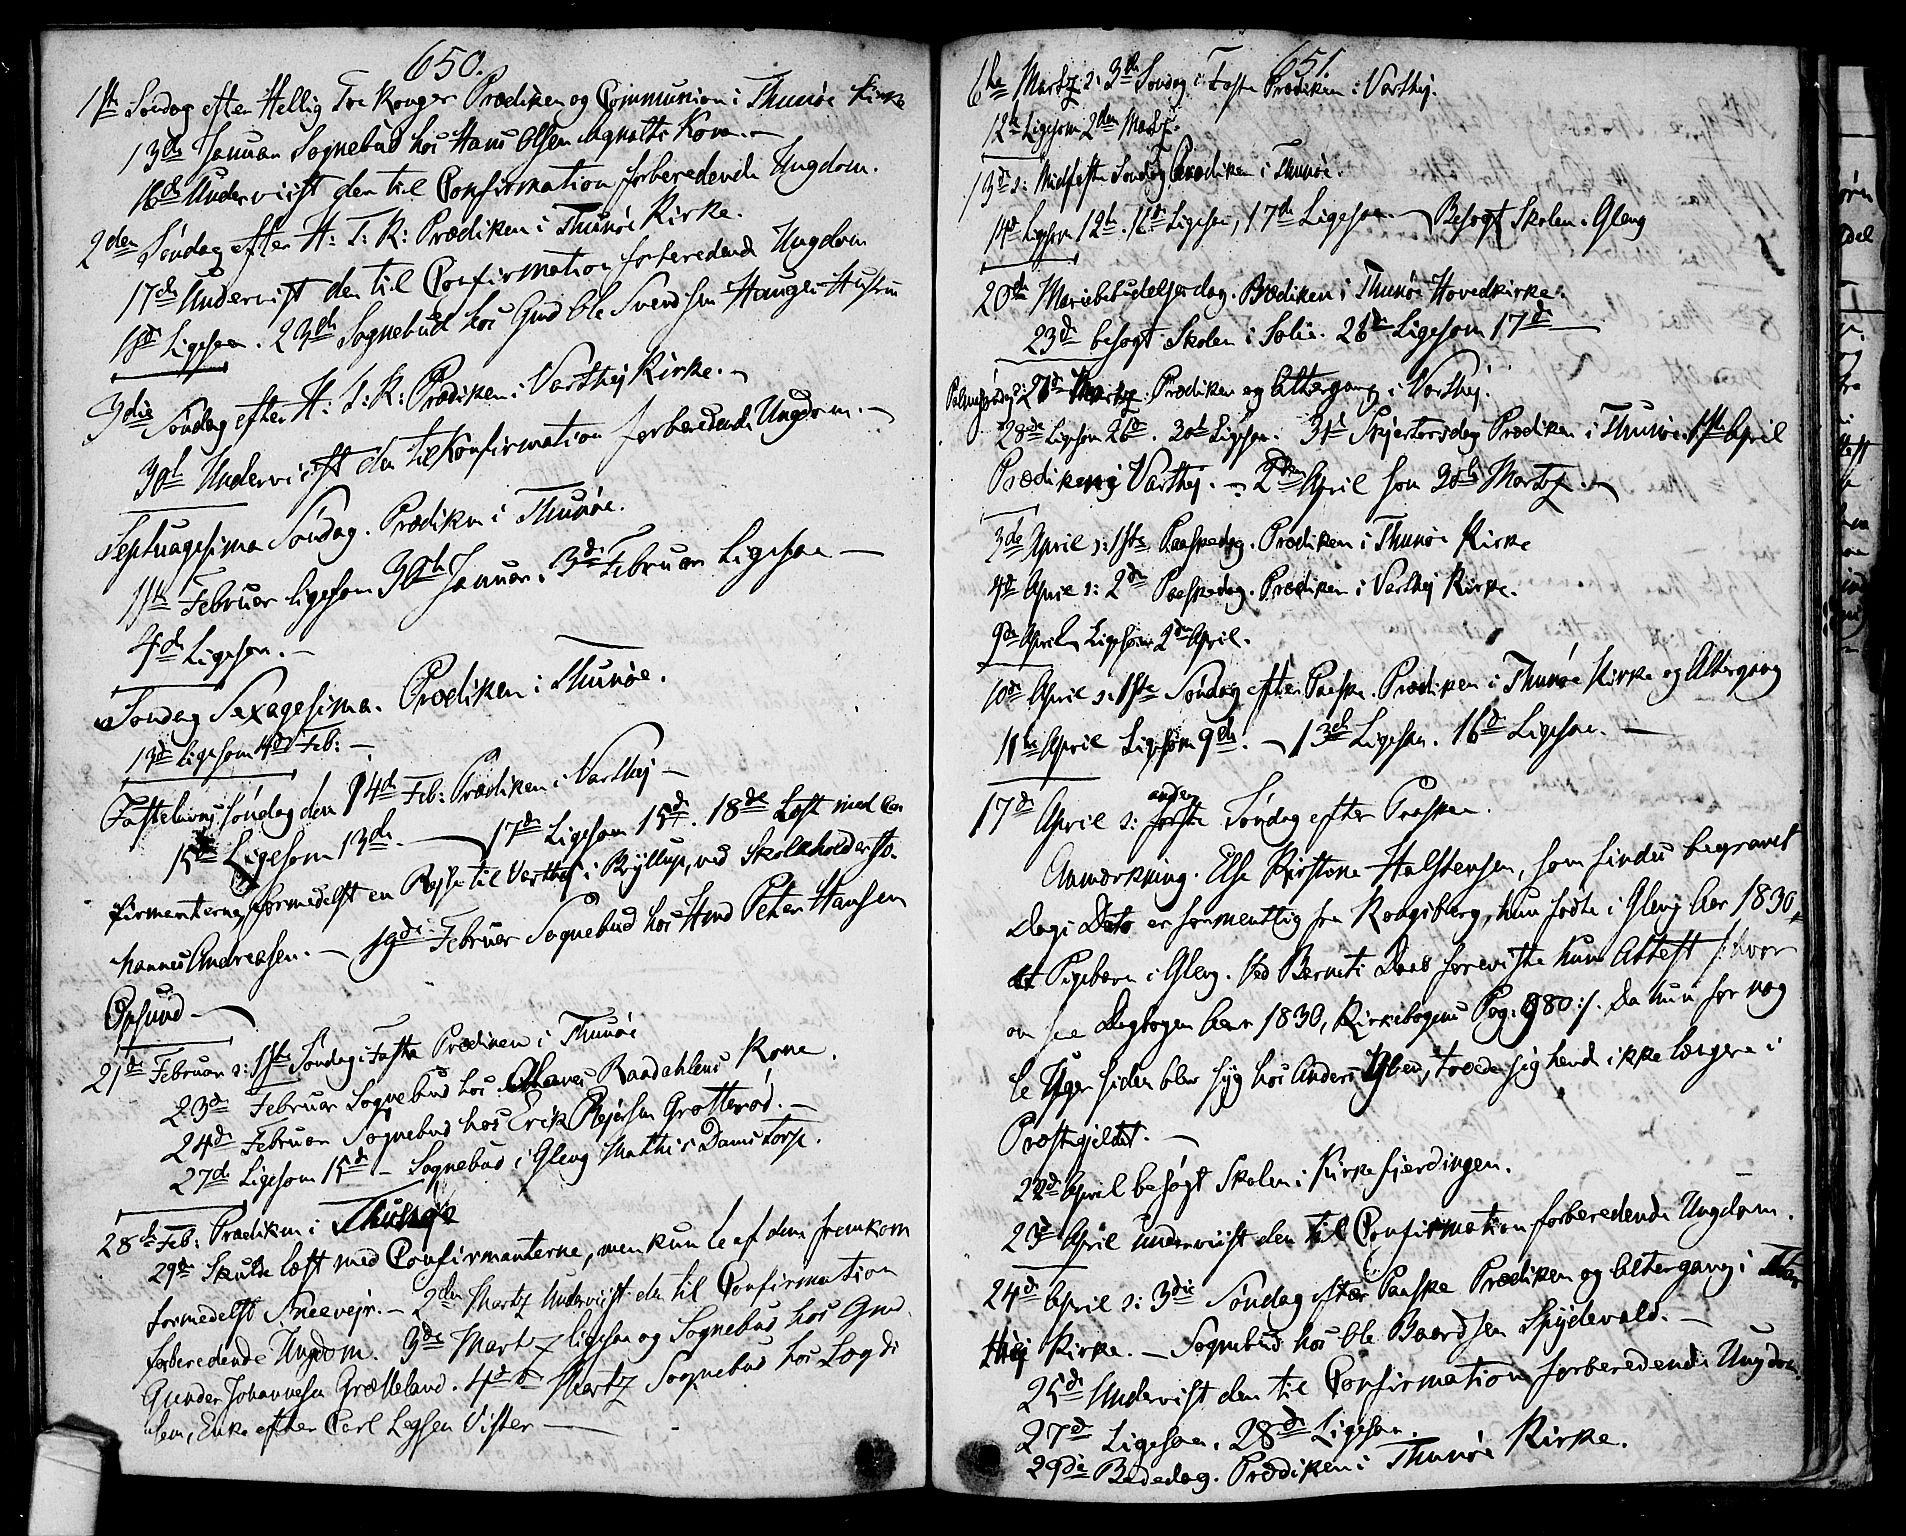 650.
1ste Søndag efter Hellig Tre Konger Prædiken og Communion i Thunøe Kirke
13de Januar Sognebud hos Hans Olsen Kone.
16de Underviist den til Confirmation forberedende Ungdom.
2den Søndag efter H: T: K: Prædiken i Thunøe Kirke.
17de Underviist den til Confirmation forberedende Ungdom
18de Ligesaa. 23de Sognebud hos Gud Ole Svendsen Haugen Hustru
3die Søndag efter H: T: K: Prædiken i Varthej Kirke.
30te Underviist den til Konfirmation forberedende Ungdom.
Septuagesima Søndag. Prædiken i Thunøe.
1ste Februar ligesom 30te Januar. 3de Februar Ligesaa
4de Ligesaa.
Søndag Sexagesima. Prædiken i Thunøe.
13de ligesom 4de Feb:
Fastelavns søndag den 14de Feb: Prædiken i Varthej
15de Ligesom 13de. 17de Ligesom 15de. 18de Læst med Con
firmanterne, formedelst en Rejse til Varthej i Ryllup, ved Skoleholder Jo-
hannes Andreasen. 19de Februar Sognebud hos Hend Peter Hansen
Opsund
21de Februar ɔ: 1ste Søndag i Faste Prædiken i Thunøe
23de Februar Sognebud hos Raadahlens Kone.
24de Februar Sognebud hos Erik Rejersen Grotterød.
27de Ligesom 15de Sognebud i Gleng Mathis Damstorp.
28de Feb: Prædiken i Thunøe
29de Skulde læst med Confirmanterne, men kun le af dem fremkom
formedelst Sneevejr. 2den Martz Underviist den til Confirmation
forberedende Ungdom. 3de Martz ligesaa og Sognebud hos Gud
Gunder Johannesen Grælleland. 4de Martz Sognebud hos Logdi
lem, Enke efter Carl Leysen Vister
651
6te Martz ɔ: 3de Søndag i Faste Prædiken i Varthej.
12te Ligesom 2den Martz.
13de ɔ: Midfaste Søndag Prædiken i Thunøe.
14de Ligesom 12te. 16de Ligesaa, 17de Ligesaa. Besøgt Skolen i Gleng
20de Mariæbebudelsesdag. Prædiken i Thunøe Hovedkirke.
23de besøgt Skolen i Solie. 26de Ligesom 17de
Palmesøndag ɔ: 27de Martz Prædiken og Altergang i Varthej.
28de Ligesom 26de. 30te Ligesaa. 31te Skjertorsdag Prædiken i Thunøe. 1ste April
Prædiken i Varthej. 2den April som 30te Martz.
3de April ɔ: 1ste Paaskedag. Prædiken i Thunøe Kirke
4de April ɔ: 2den Paaskedag. Prædiken i Varthej Kirke.
9de April Ligesom 2den April.
10de April ɔ: 1ste Søndag efter Paaske. Prædiken i Thunøe Kirke og Altergang
11te April Ligesom 9de. 13de Ligesaa. 16de Ligesaa.
17de April ɔ: første anden Søndag efter Paasken.
Anmærkning. Else Kirstine Halstensen, som findes begravet
Dags Dato er formentlig fra Kongsberg, hun fødte i Gleng Aar 1830,
et Pigebarn i Gleng. Ved Barnets Daab foreviste hun Attest /:hvor
om see Dagbogen Aar 1830, Kirkebogens Pag: 980:/. Da hun for nog
le Uger siden blev syg hos Anders Ilben, troede sig hend ikke længere i
Præstegjeldet.
22de April besøgt Skolen i Kirkefjerdingen.
23de April Underviist den til Confirmation forberedende Ungdom.
24de April ɔ: 3die Søndag efter Paaske Prædiken og Altergang i Var
thej Kirke. Sognebud hos Ole Baardsen Spydevold.
25de Underviist den til Confirmation forberedende Ungdom.
27de Ligesaa. 28de Ligesaa.
29de Bededag. Prædiken i Thunøe Kirke.